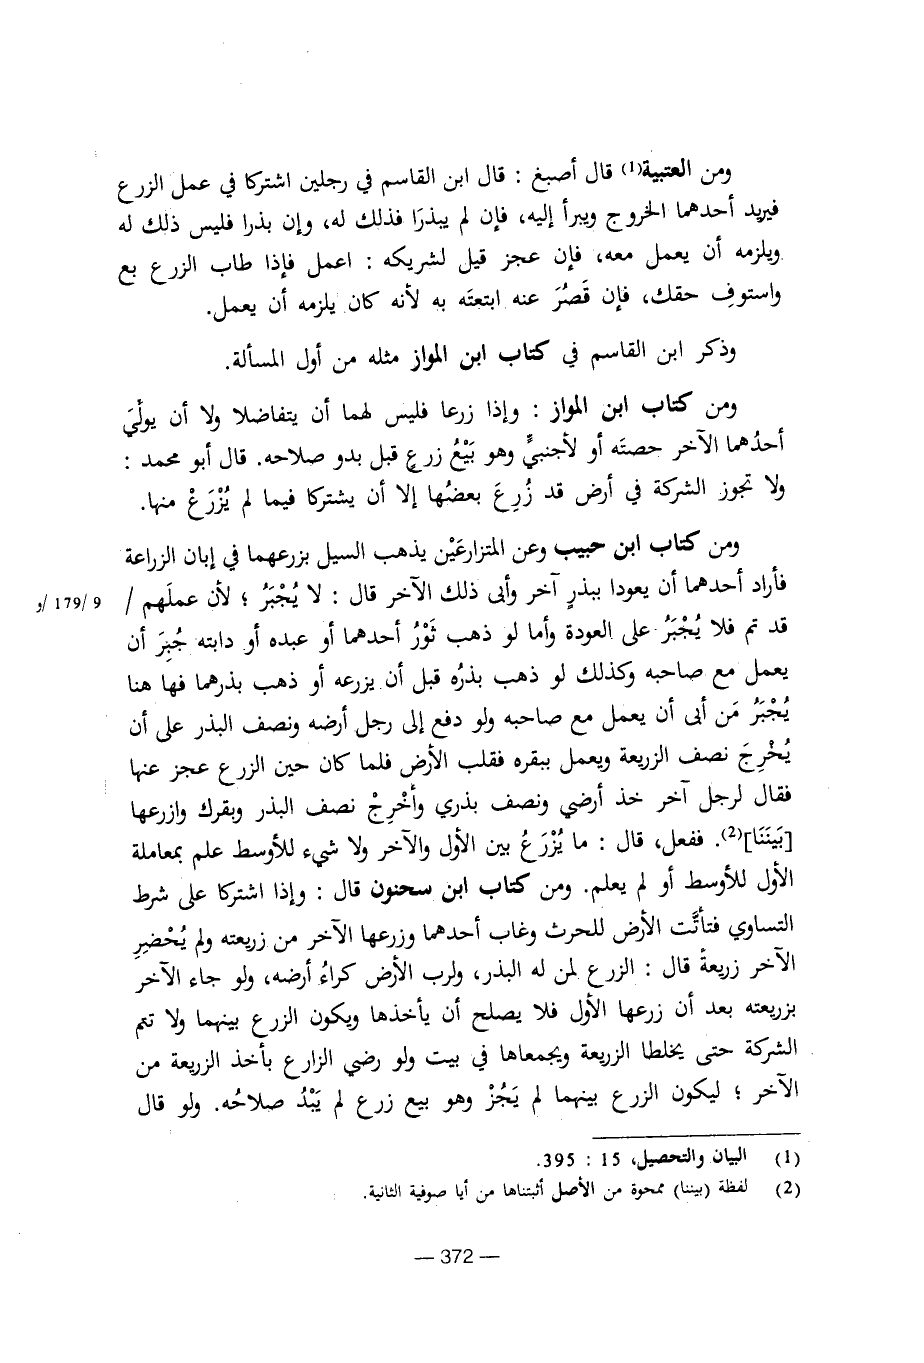 ومن العتبية(1) قال أصبغ : قال ابن القاسم في رجلين اشتركا في عمل الزرع
فيريد أحدهما الخروج ويبرأ إليه، فإن لم يبذرَا فذلك له، وإن بذرا فليس ذلك له
ويلزمه أن يعمل معه، فإن عجز قيل لشريكه : اعمل فإذا طاب الزرع بع
واستوفِ حقك، فإن قَصُرَ عنه ابتعتَه به لأنه كان يلزمه أن يعمل.
وذكر ابن القاسم في كتاب ابن المواز مثله من أول المسألة.
ومن كتاب ابن المواز : وإذا زرعا فليس لهما أن يتفاضلا ولا أن يولّيَ
أحدُهما الآخر حصتَه أو لأجنبيٍّ وهو بَيْعُ زرعٍ قبل بدو صلاحه. قال أبو محمد :
ولا تجوز الشركة في أرض قد زُرِعَ بعضُها إلا أن يشتركا فيما لم يُزْرَعْ منها.
ومن كتاب ابن حبيب وعن المتزارعَيْن يذهب السيل بزرعهما في إبان الزراعة
فأراد أحدهما أن يعودا ببذرٍ آخر وأبى ذلك الآخر قال : لا يُجْبَرُ ؛ لأن عملَهم / 9 /179 /و
قد تم فلا يُجْبَرُ على العودة وأما لو ذهب ثَوْرُ أحدهما أو عبده أو دابته جُبِرَ أن
يعمل مع صاحبه وكذلك لو ذهب بذرُه قبل أن يزرعه أو ذهب بذرهما فها هنا
يُجْبَرُ مَن أبى أن يعمل مع صاحبه ولو دفع إلى رجل أرضه ونصف البذر على أن
يُخْرِجَ نصف الزريعة ويعمل ببقره فقلب الأرض فلما كان حين الزرع عجز عنها
فقال لرجل آخر خذ أرضي ونصف بذري وأَخْرِجْ نصف البذر وبقرك وازرعها
[بَيْنَنَا](2). ففعل، قال : ما يُزْرَعُ بين الأول والآخر ولا شيء للأوسط علم بمعاملة
الأول للأوسط أو لم يعلم. ومن كتاب ابن سحنون قال : وإذا اشتركا على شرط
التساوي فتأتَّت الأرض للحرث وغاب أحدهما وزرعها الآخر من زريعته ولم يُحْضِرِ
الآخر زريعةً قال : الزرع لمن له البذر، ولرب الأرض كراءُ أرضه، ولو جاء الآخر
بزريعته بعد أن زرعها الأول فلا يصلح أن يأخذها ويكون الزرع بينهما ولا تتم
الشركة حتى يخلطا الزريعة ويجمعاها في بيت ولو رضي الزارع بأخذ الزريعة من
الآخر ؛ ليكون الزرع بينهما لم يَجُزْ وهو بيع زرع لم يَبْدُ صلاحُه. ولو قال
(1) البيان والتحصيل، 15 : 395.
(2) لفظة (بيننا) ممحوة من الأصل أثبتناها من أيا صوفية الثانية.
— 372 —